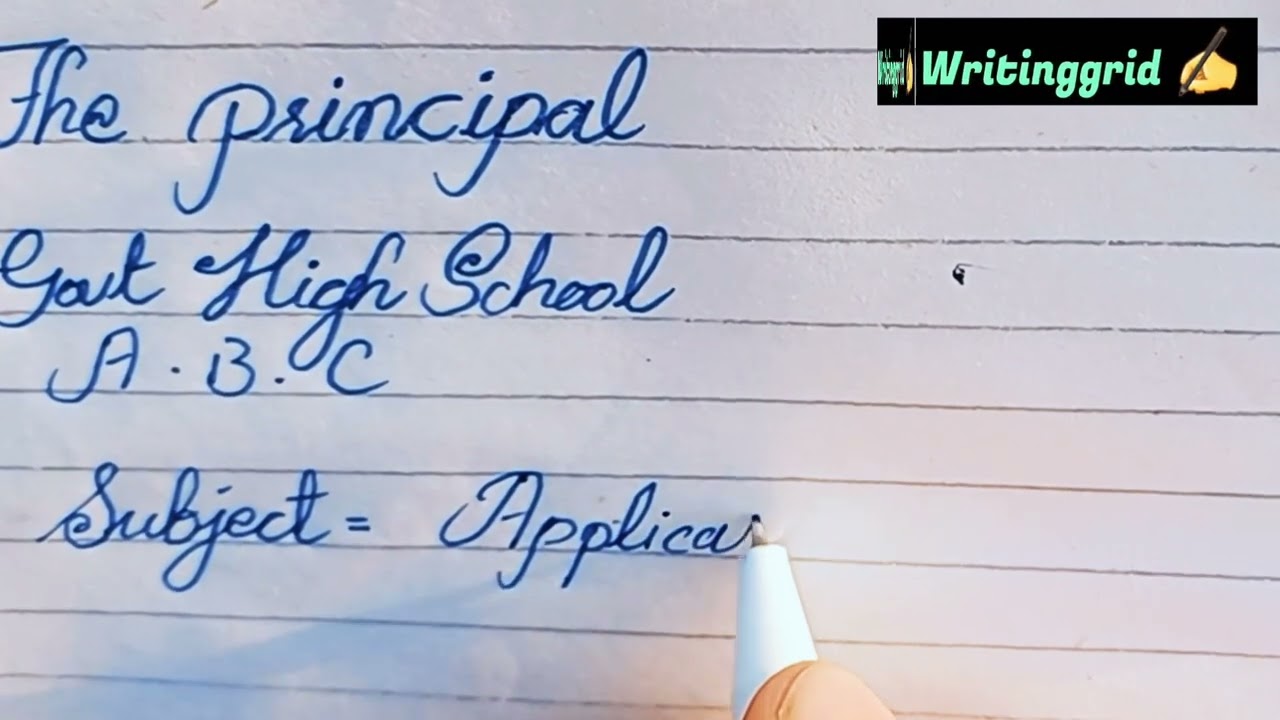 Writinggrid
The principal
Govt High School
A. B. C
Subject = Applica